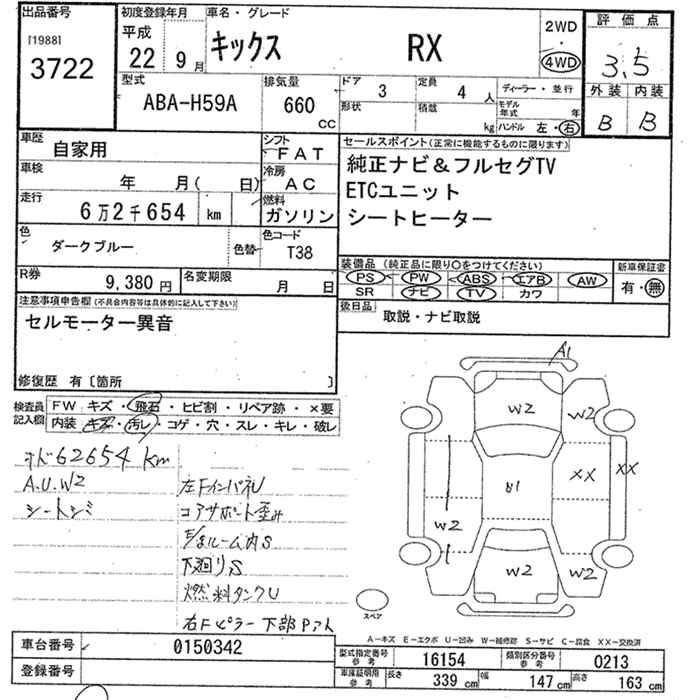 出品番号
[1988]
3722
初度登録年月
平成
22 9 月
車名・グレード
キックス RX
2WD
・
4WD
評価点
3.5
外装 内装
B B
型式
ABA-H59A
排気量
660
cc
ドア 3
形状
定員 4 人
積載
kg
ディーラー・並行
モデル年式 年
ハンドル 左・右
車歴 自家用
車検 年 月( 日)
走行 6万2千654 km
色 ダークブルー 色替
シフト FAT
冷房 AC
燃料 ガソリン
色コード T38
セールスポイント(正常に機能するものに限ります)
純正ナビ&フルセグTV
ETCユニット
シートヒーター
R券 9,380 円
名変期限 月 日
装備品 (純正品に限り○をつけてください)
PS PW ABS エアB AW
SR ナビ TV カワ
新車保証書
有・無
後日品 取説・ナビ取説
注意事項申告欄(不具合内容等は具体的に記入して下さい)
セルモーター異音
修復歴 有〔箇所 〕
検査員記入欄
FW キズ・飛石・ヒビ割・リペア跡・×要
内装 キズ・汚レ・コゲ・穴・スレ・キレ・破レ
オド62654km
A.U.W2
左FインパネU
コアサポート歪み
ルーム内S
下廻りS
燃料タンクU
右Fピラー下部Pアト
A1
W2
W2
XX
XX
B1
W2
W2
W2
スペア
A-キズ E-エクボ U-凹み W-補修跡 S-サビ C-腐食 XX-交換済
車台番号 0150342
登録番号
型式指定番号 参考 16154
類別区分番号 参考 0213
車庫証明用 参考 長さ 339 cm 幅 147 cm 高さ 163 cm